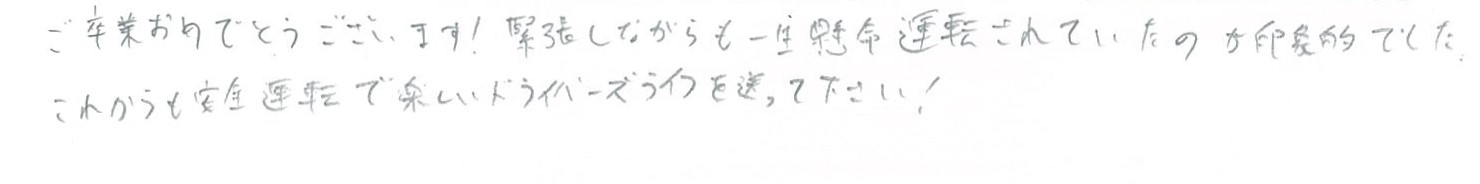 ご卒業おめでとうございます!緊張しながらも一生懸命運転されていたのが印象的でした。
これからも安全運転で楽しいドライバーズライフを送って下さい!